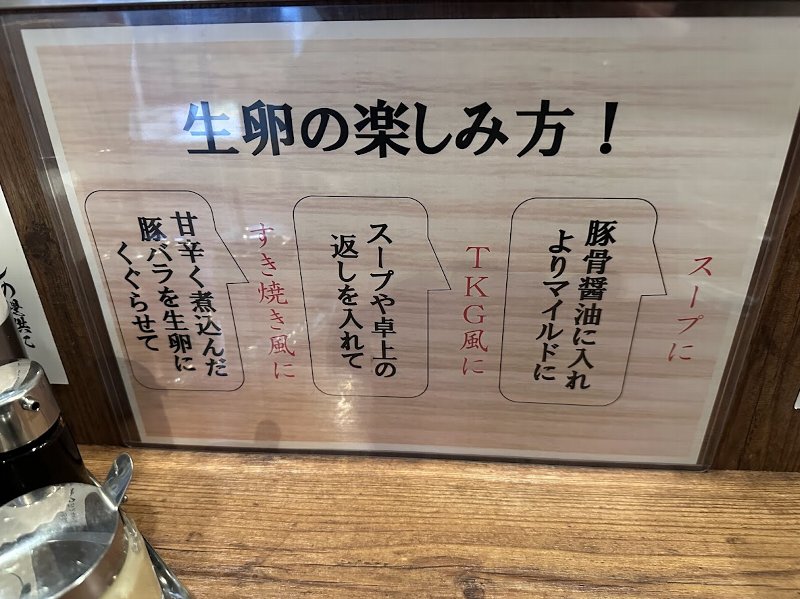 生卵の楽しみ方！
スープに
豚骨醤油に入れ
よりマイルドに
TKG風に
スープや卓上の
返しを入れて
すき焼き風に
甘辛く煮込んだ
豚バラを生卵に
くぐらせて